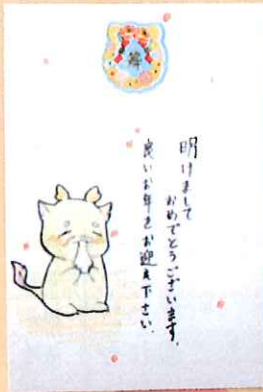 明けまして
おめでとうございます。
良いお年をお迎え下さい。